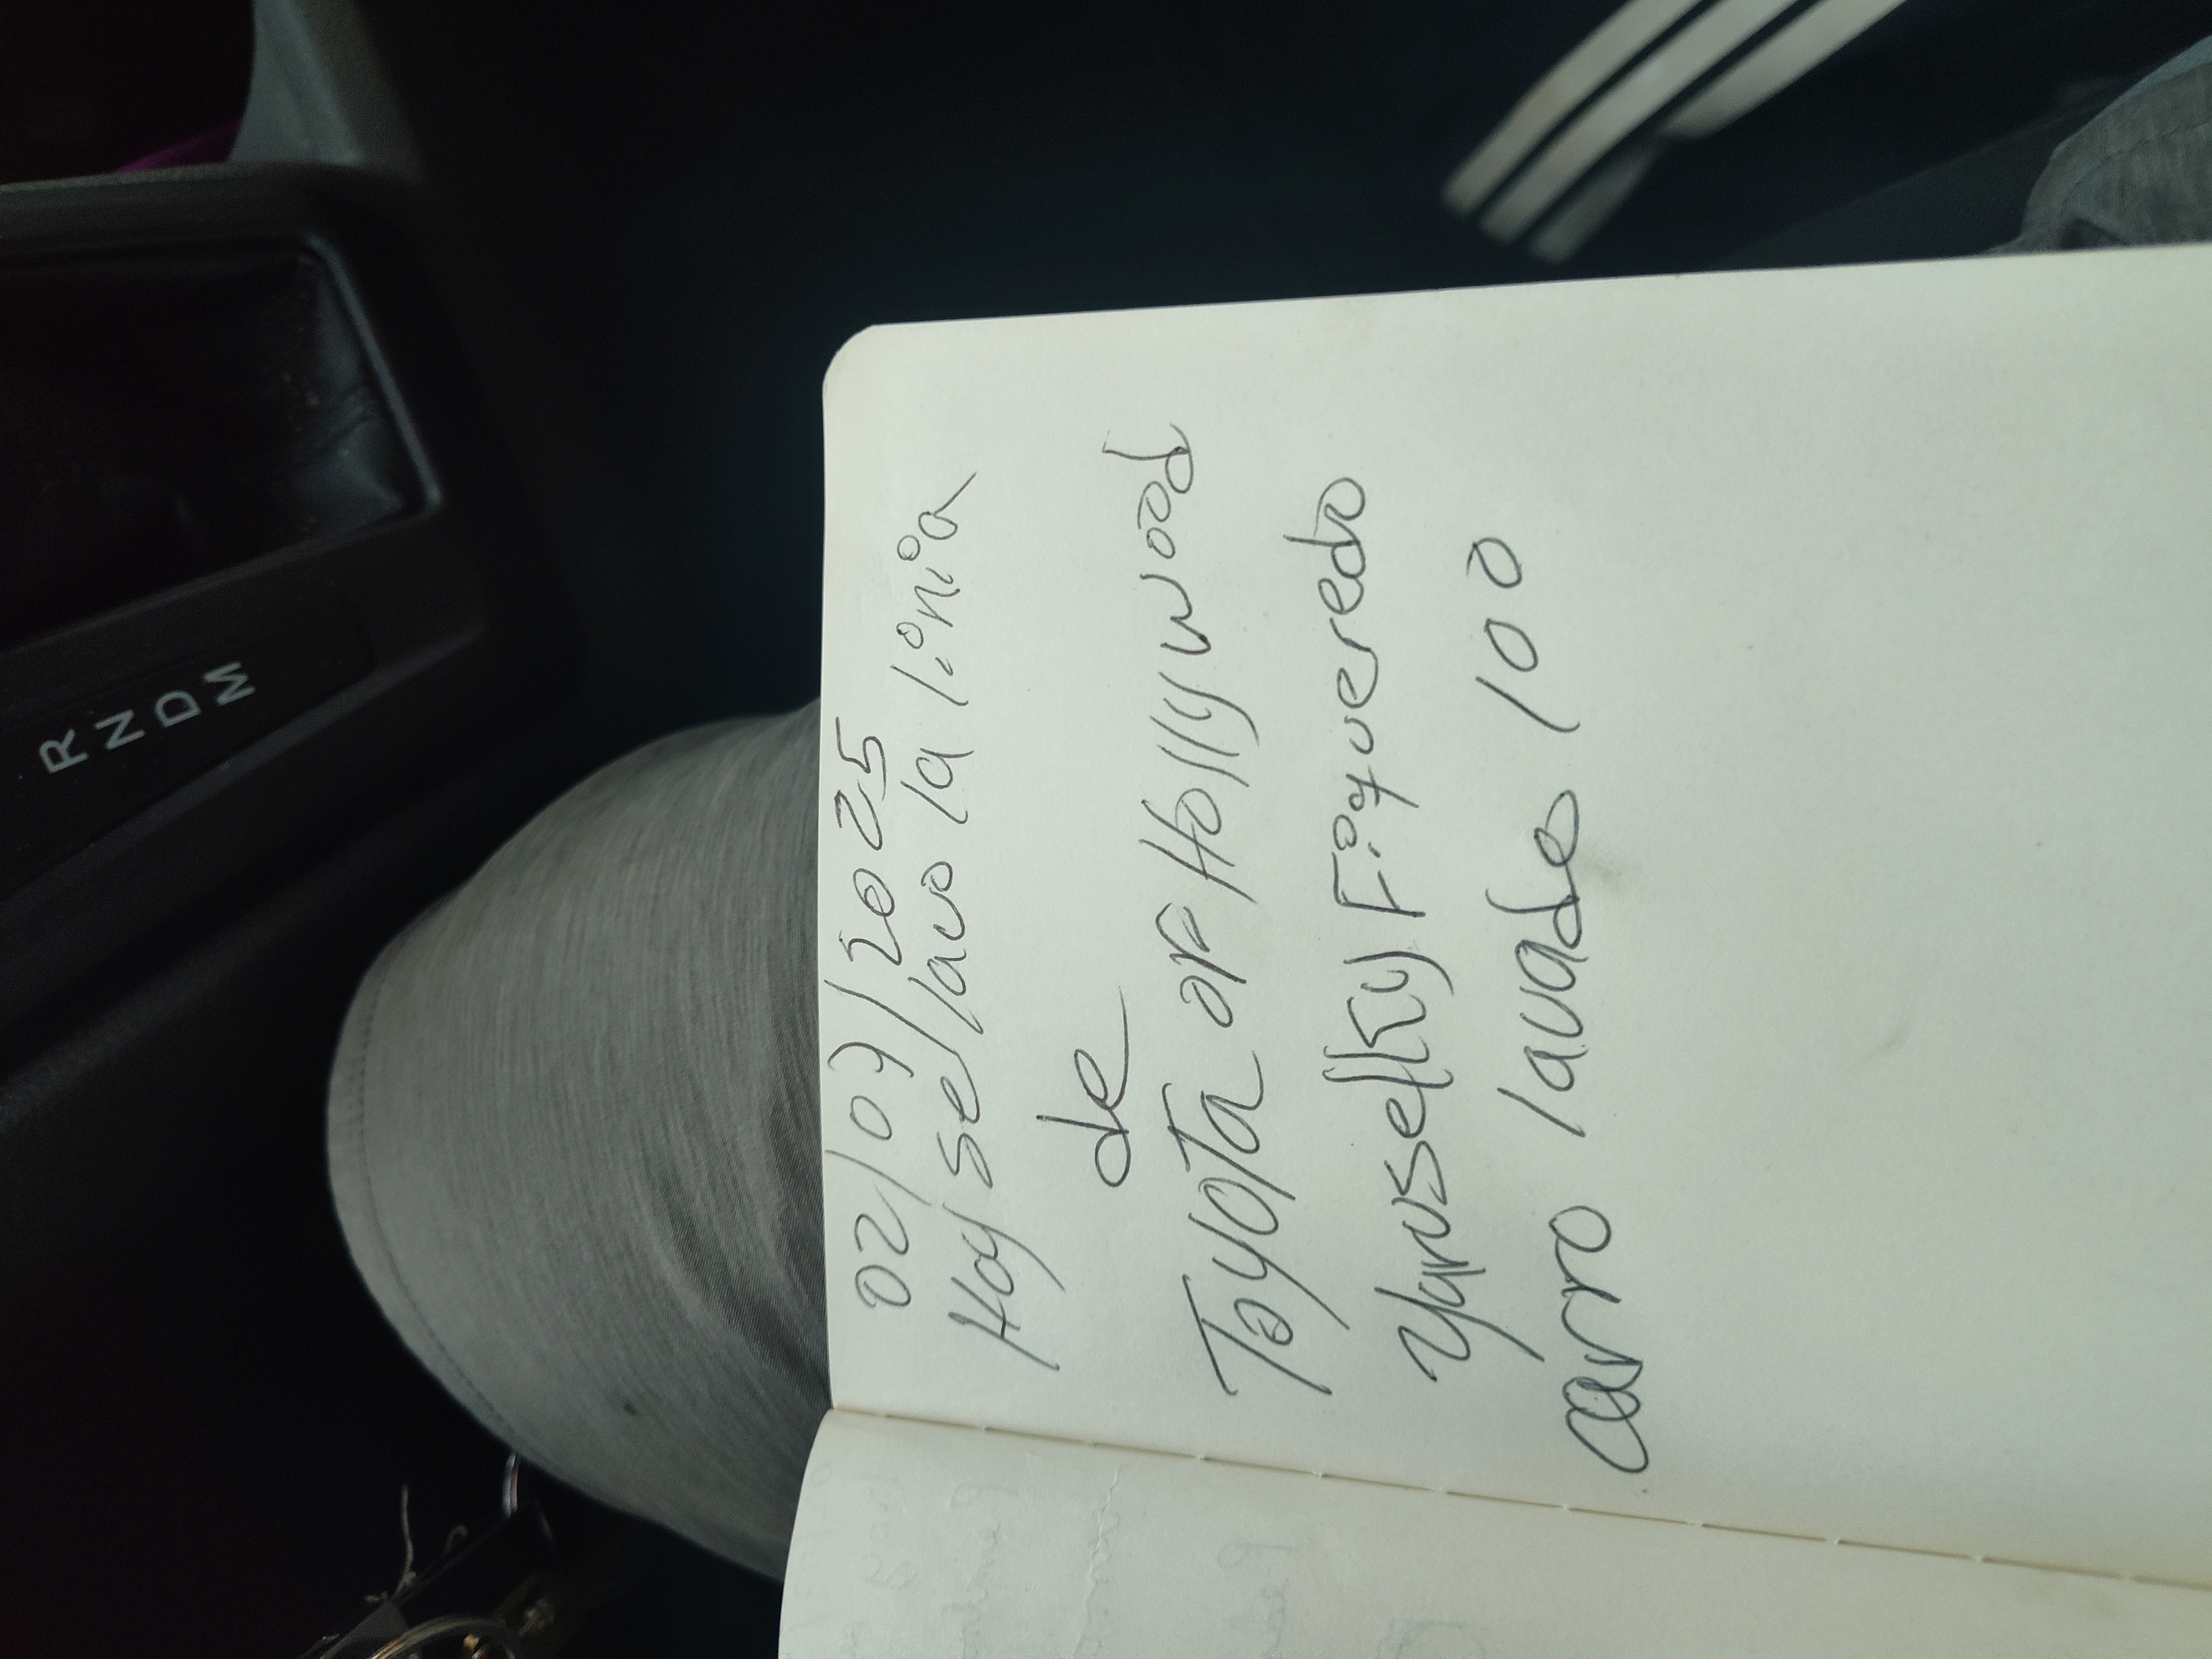 02/07/2025
Hoy se lavo la linia
de
Toyota of Hollywood
Yaruselky Figueredo
carro lavade 100
R
N
D
M